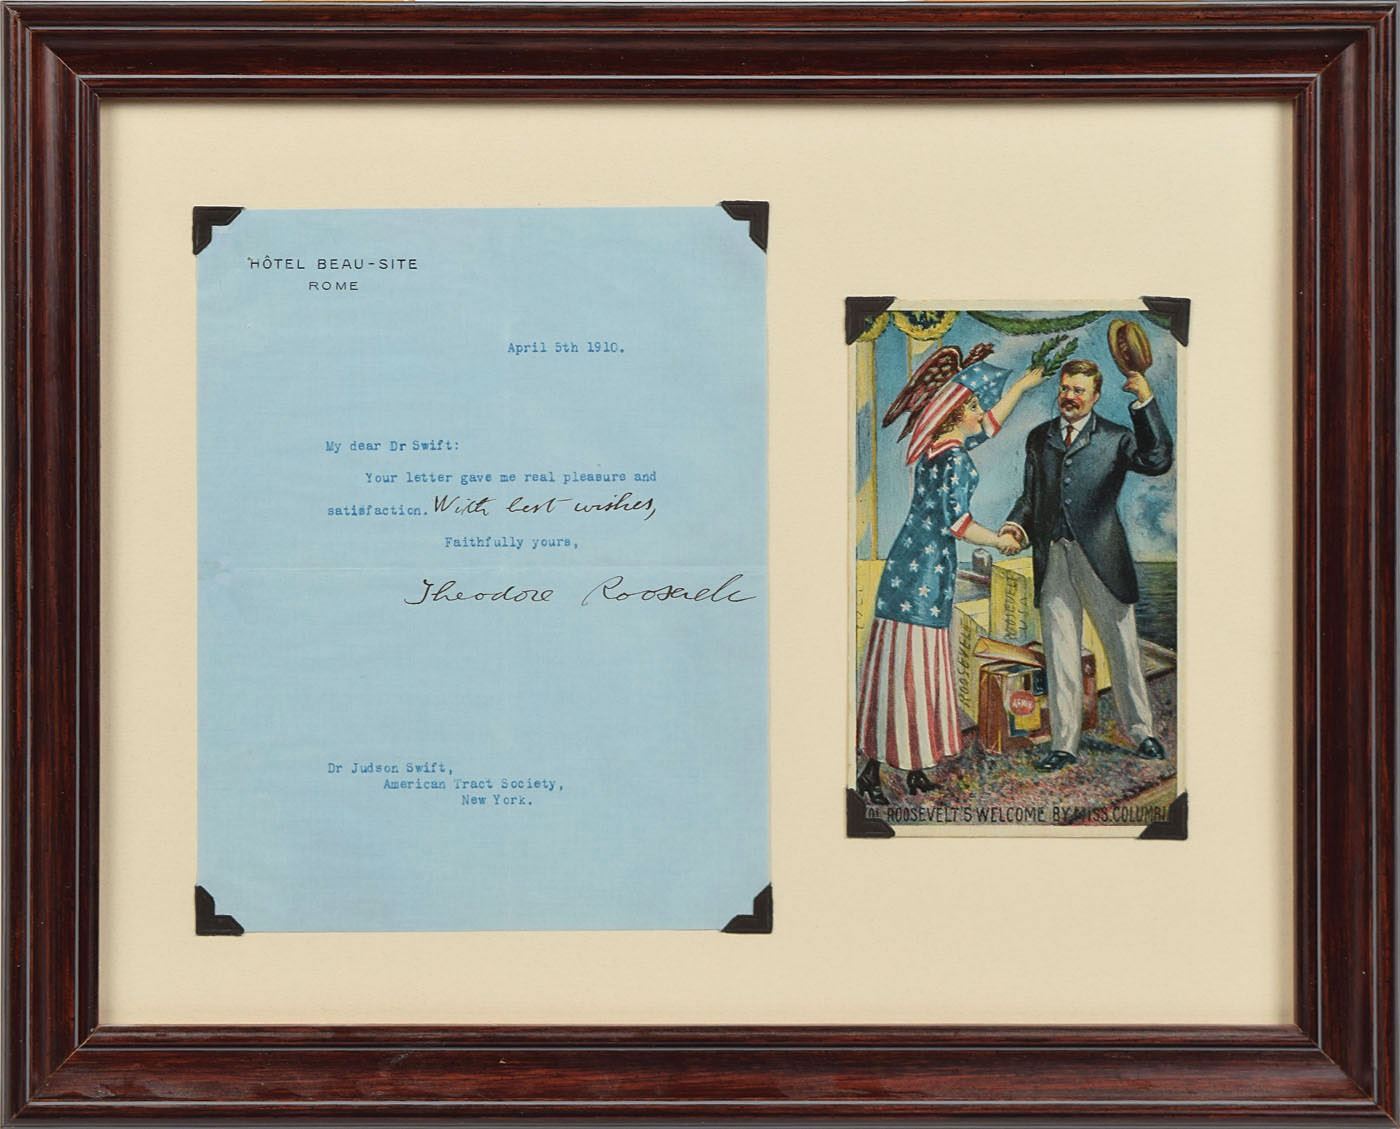 HÔTEL BEAU-SITE
ROME
April 5th 1910.
My dear Dr Swift:
Your letter gave me real pleasure and
satisfaction. With best wishes,
Faithfully yours,
Theodore Roosevelt
Dr Judson Swift,
American Tract Society,
New York.
ROOSEVELT
U.S.A.
ROOSEVELT
ROOSEVELT'S WELCOME BY MISS. COLUMBI